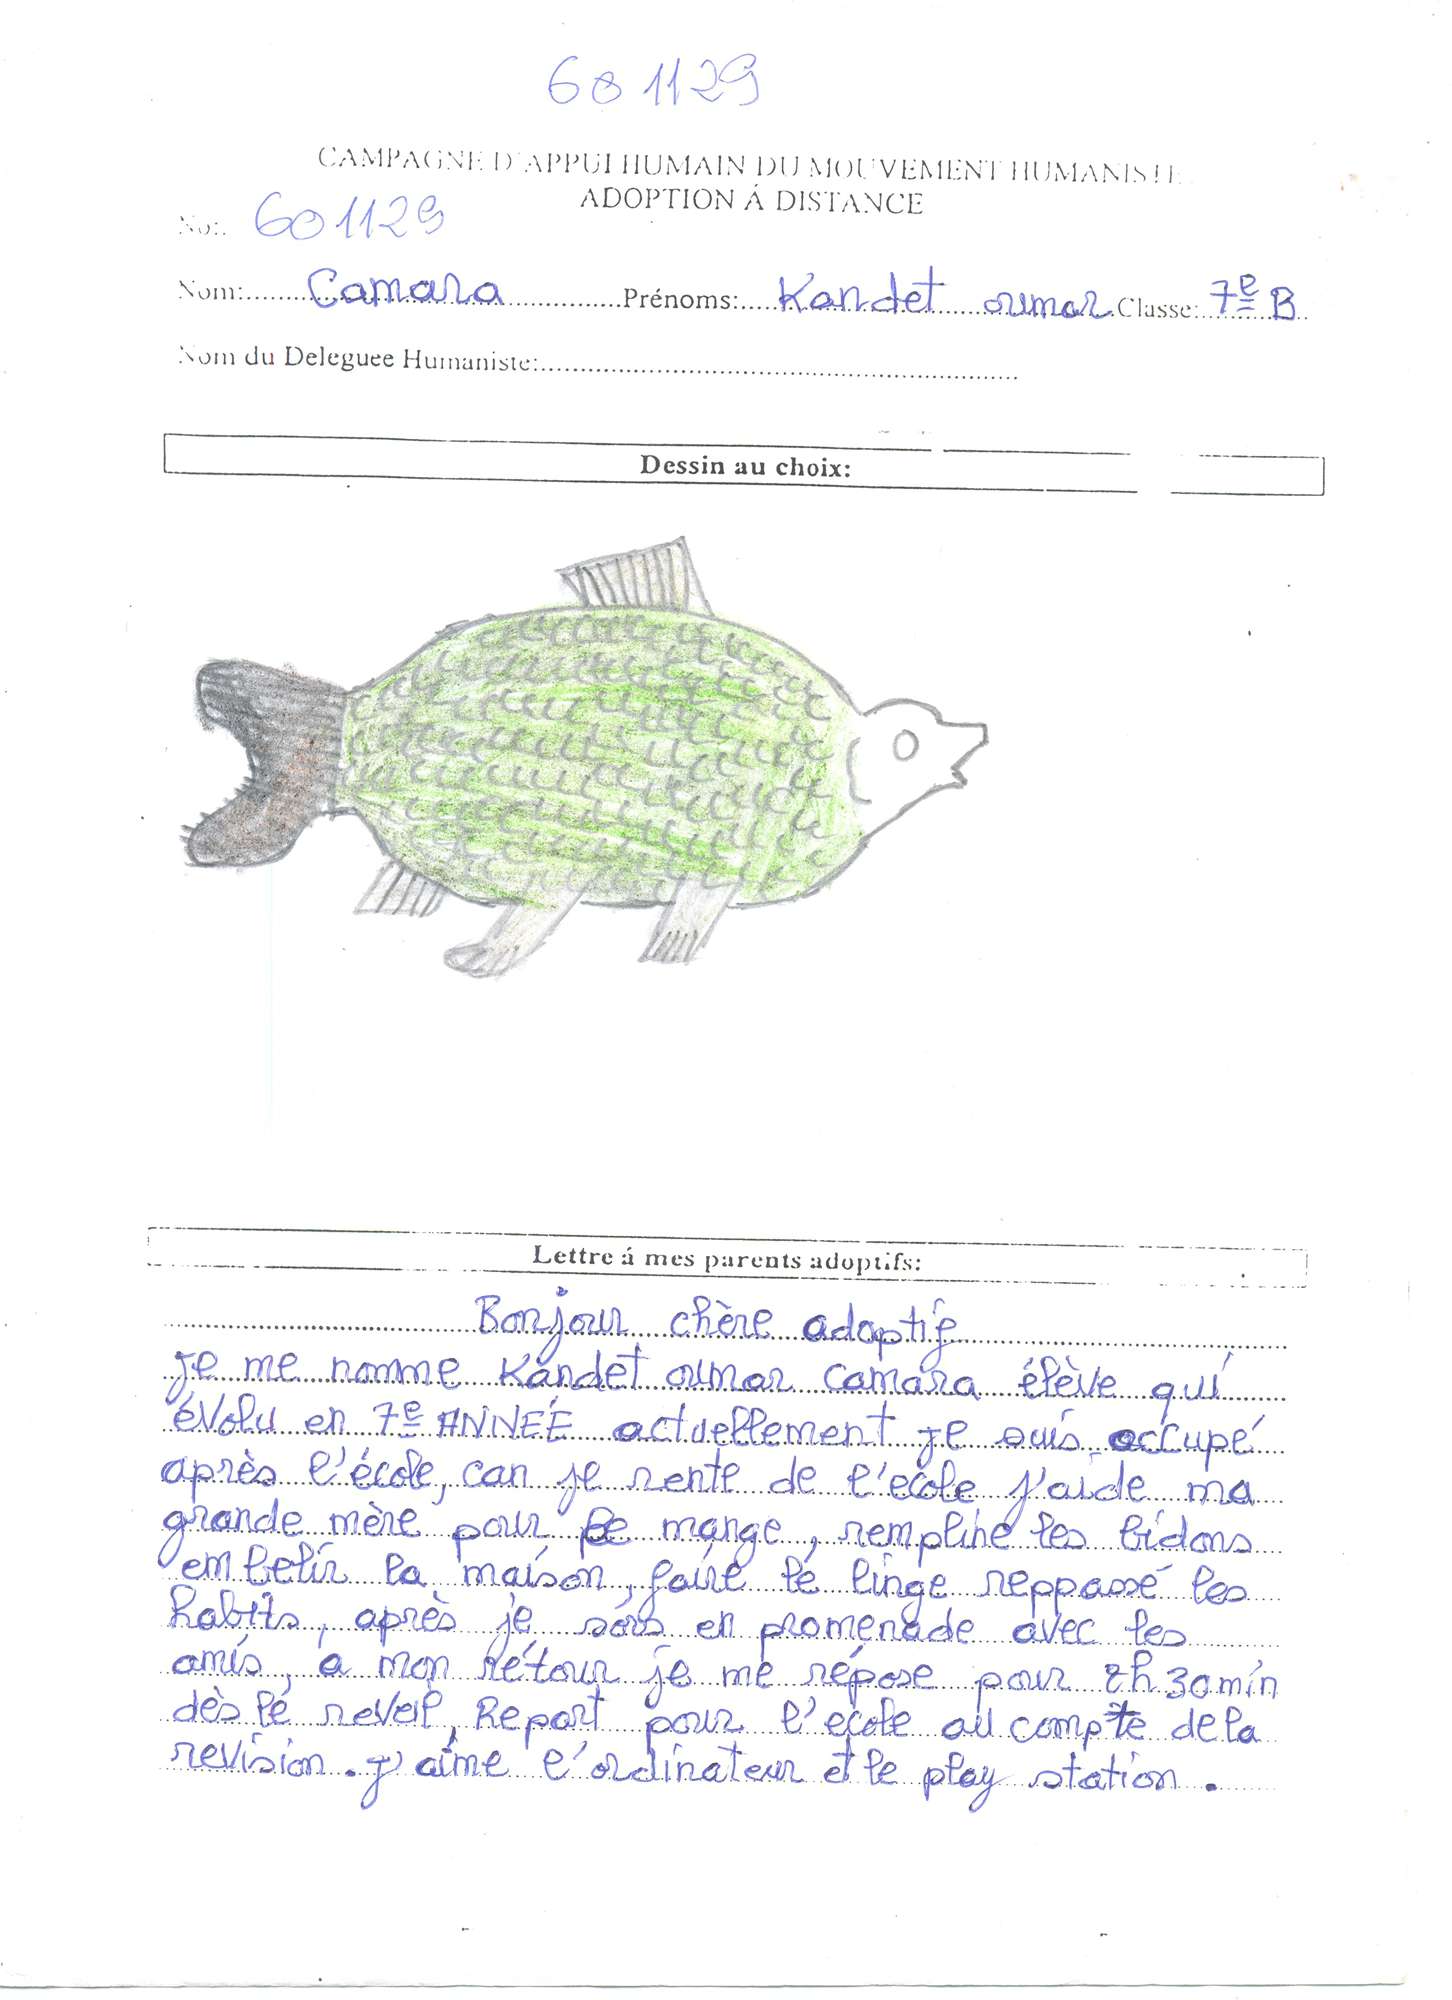 601129
CAMPAGNE D'APPUI HUMAIN DU MOUVEMENT HUMANISTE
ADOPTION Á DISTANCE
No: 601129
Nom: Camara Prénoms: Kandet oumar Classe: 7e B
Nom du Deleguee Humaniste:
Dessin au choix:
Lettre á mes parents adoptifs:
Bonjour chère adoptif
je me nomme Kandet oumar camara élève qui
évolu en 7e ANNEÉ actuellement je suis occupé
après l'école, can je rente de l'ecole j'aide ma
grande mère pour le mange, remplire les bidons
embelir la maison, faire lé linge reppassé les
habits, après je sors en promenade avec les
amis, a mon rétour je me répose pour 2h 30 min
dès lé reveil, Repart pour l'ecole au compte de la
revision. j'aime l'ordinateur et le play station.